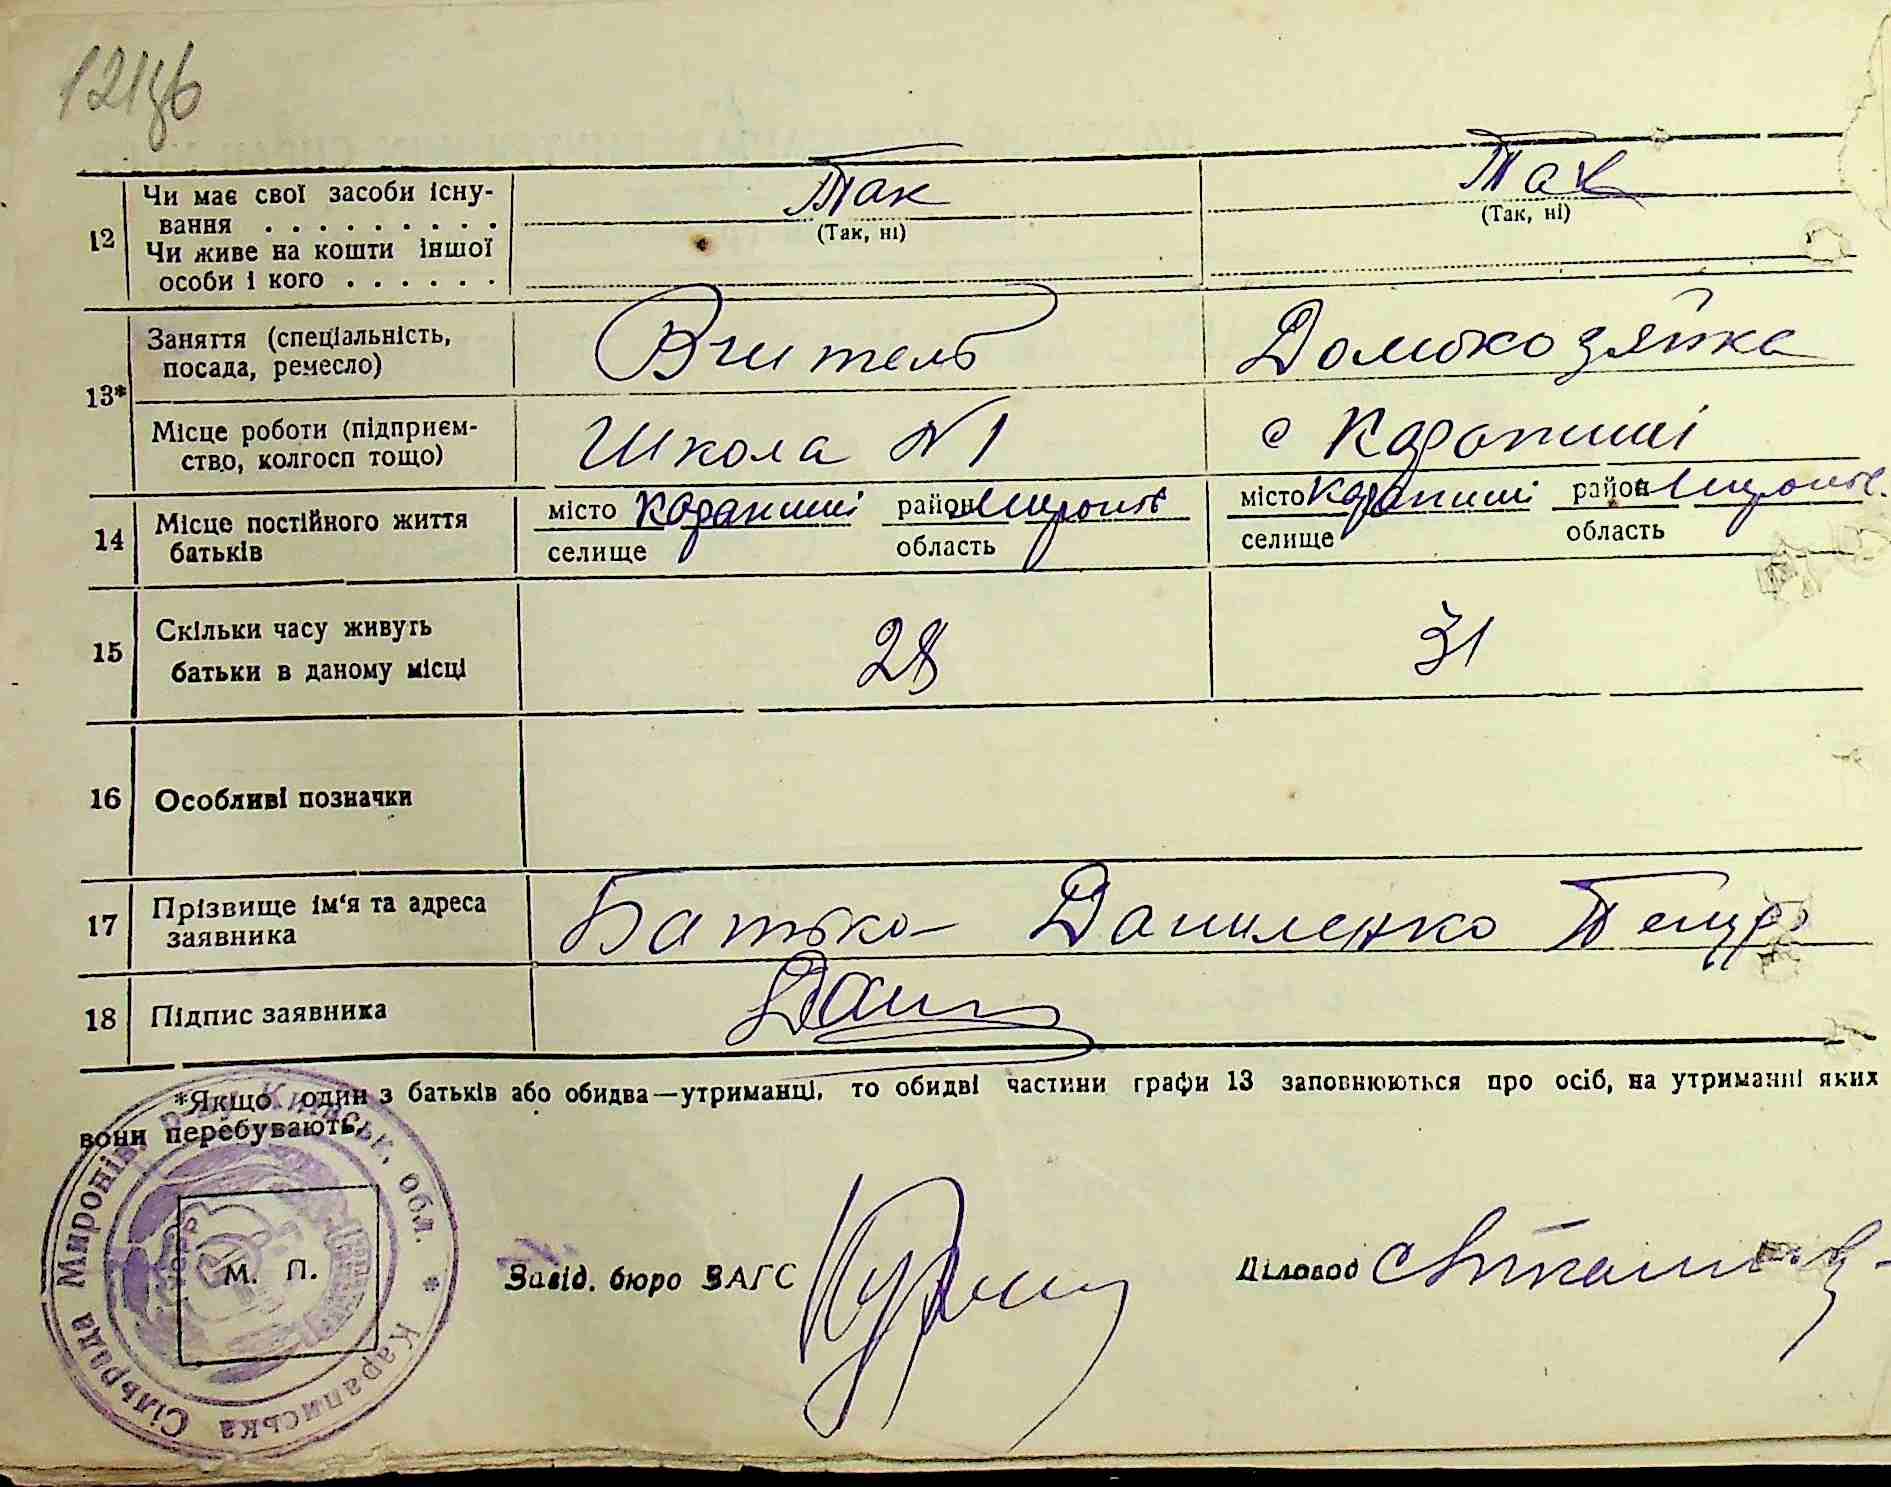 121зв
12 Чи має свої засоби існу-
вання . . . . . . . . . Так Так
Чи живе на кошти іншої (Так, ні) (Так, ні)
особи і кого . . . . . .
13* Заняття (спеціальність, Вчитель Домохозяйка
посада, ремесло)
Місце роботи (підприєм- Школа №1 с Карапиші
ство, колгосп тощо)
14 Місце постійного життя місто Карапиші район Миронів місто Карапиші район Миронів.
батьків селище область селище область
15 Скільки часу живуть 28 31
батьки в даному місці
16 Особливі позначки
17 Прізвище ім'я та адреса Батько – Даниленко Петро
заявника
18 Підпис заявника Дани
*Якщо один з батьків або обидва—утриманці, то обидві частини графи 13 заповнюються про осіб, на утриманні яких
вони перебувають.
Караписька Сільрада Миронів. р-ну Київськ. обл. *
УСРР
М. П.
Завід. бюро ЗАГС Діловод